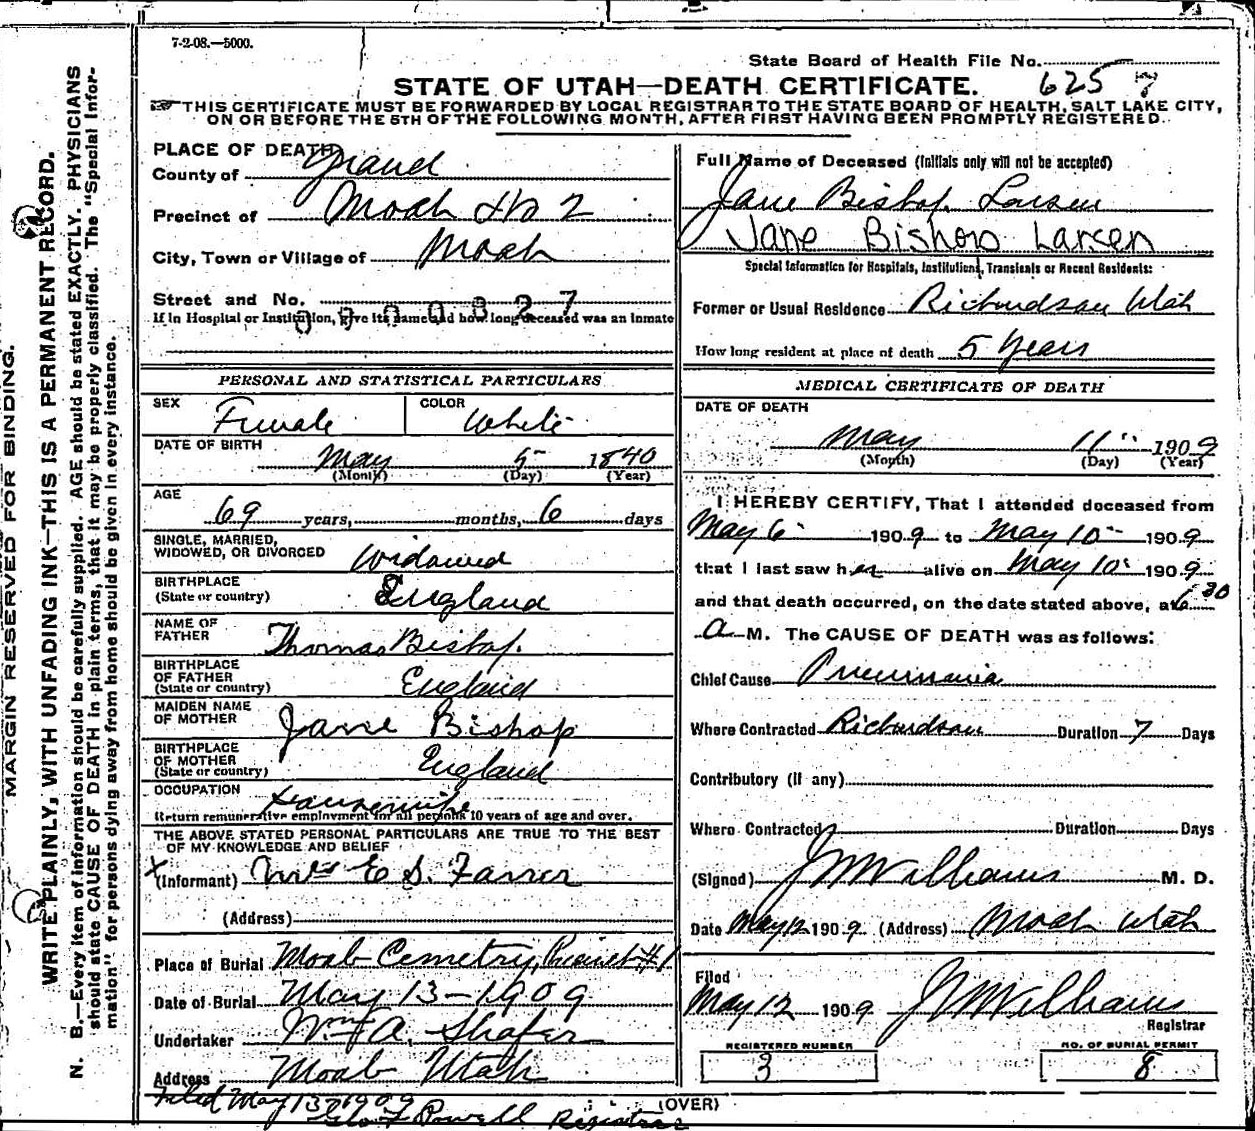 7-2-08.—5000.
State Board of Health File No. 6257
STATE OF UTAH—DEATH CERTIFICATE.
THIS CERTIFICATE MUST BE FORWARDED BY LOCAL REGISTRAR TO THE STATE BOARD OF HEALTH, SALT LAKE CITY,
ON OR BEFORE THE 5TH OF THE FOLLOWING MONTH, AFTER FIRST HAVING BEEN PROMPTLY REGISTERED.
PLACE OF DEATH
County of Grand
Precinct of Moab No 2
City, Town or Village of Moab
Street and No.
0900827
If in Hospital or Institution, give its name and how long deceased was an inmate
Full Name of Deceased (Initials only will not be accepted)
Jane Bishop Larsen
Jane Bishop Larsen
Special Information for Hospitals, Institutions, Transients or Recent Residents:
Former or Usual Residence Richardson Utah
How long resident at place of death 5 Years
PERSONAL AND STATISTICAL PARTICULARS
SEX Female COLOR White
DATE OF BIRTH
May 5 1840
(Month) (Day) (Year)
AGE
69 years, months, 6 days
SINGLE, MARRIED,
WIDOWED, OR DIVORCED Widowed
BIRTHPLACE
(State or country) England
NAME OF
FATHER Thomas Bishop.
BIRTHPLACE
OF FATHER
(State or country) England
MAIDEN NAME
OF MOTHER Jane Bishop
BIRTHPLACE
OF MOTHER
(State or country) England
OCCUPATION Housewife
Return remunerative employment for all persons 10 years of age and over.
THE ABOVE STATED PERSONAL PARTICULARS ARE TRUE TO THE BEST
OF MY KNOWLEDGE AND BELIEF
(Informant) Mrs E S. Farrer
(Address)
Place of Burial Moab Cemetry, Precinct #1
Date of Burial May 13-1909
Undertaker Wm A. Shafer
Address Moab Utah
Filed May 13 1909
Geo F Powell Registrar
MEDICAL CERTIFICATE OF DEATH
DATE OF DEATH
May 11 1909
(Month) (Day) (Year)
I HEREBY CERTIFY, That I attended deceased from
May 6 1909 to May 10 1909
that I last saw her alive on May 10 1909
and that death occurred, on the date stated above, at 6 30
a M. The CAUSE OF DEATH was as follows:
Chief Cause Pneumonia
Where Contracted Richardson Duration 7 Days
Contributory (if any)
Where Contracted Duration Days
(Signed) J W Williams M. D.
Date May 12 1909 (Address) Moab Utah
Filed
May 12 1909 J W Williams
Registrar
REGISTERED NUMBER
3
NO. OF BURIAL PERMIT
8
(OVER)
MARGIN RESERVED FOR BINDING.
WRITE PLAINLY, WITH UNFADING INK—THIS IS A PERMANENT RECORD.
N. B.—Every item of information should be carefully supplied. AGE should be stated EXACTLY. PHYSICIANS
should state CAUSE OF DEATH in plain terms, that it may be properly classified. The "Special Infor-
mation" for persons dying away from home should be given in every instance.